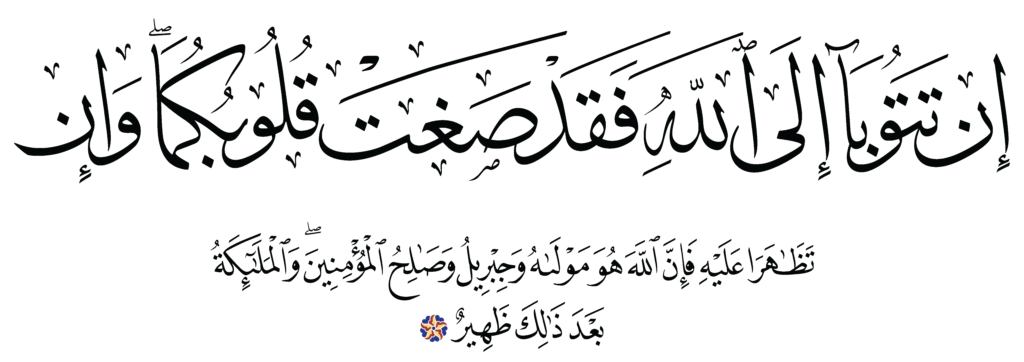 إِن تَتُوبَآ إِلَى ٱللَّهِ فَقَدْ صَغَتْ قُلُوبُكُمَا ۖ وَإِن
تَظَـٰهَرَا عَلَيْهِ فَإِنَّ ٱللَّهَ هُوَ مَوْلَىٰهُ وَجِبْرِيلُ وَصَـٰلِحُ ٱلْمُؤْمِنِينَ ۖ وَٱلْمَلَـٰٓئِكَةُ
بَعْدَ ذَٰلِكَ ظَهِيرٌ